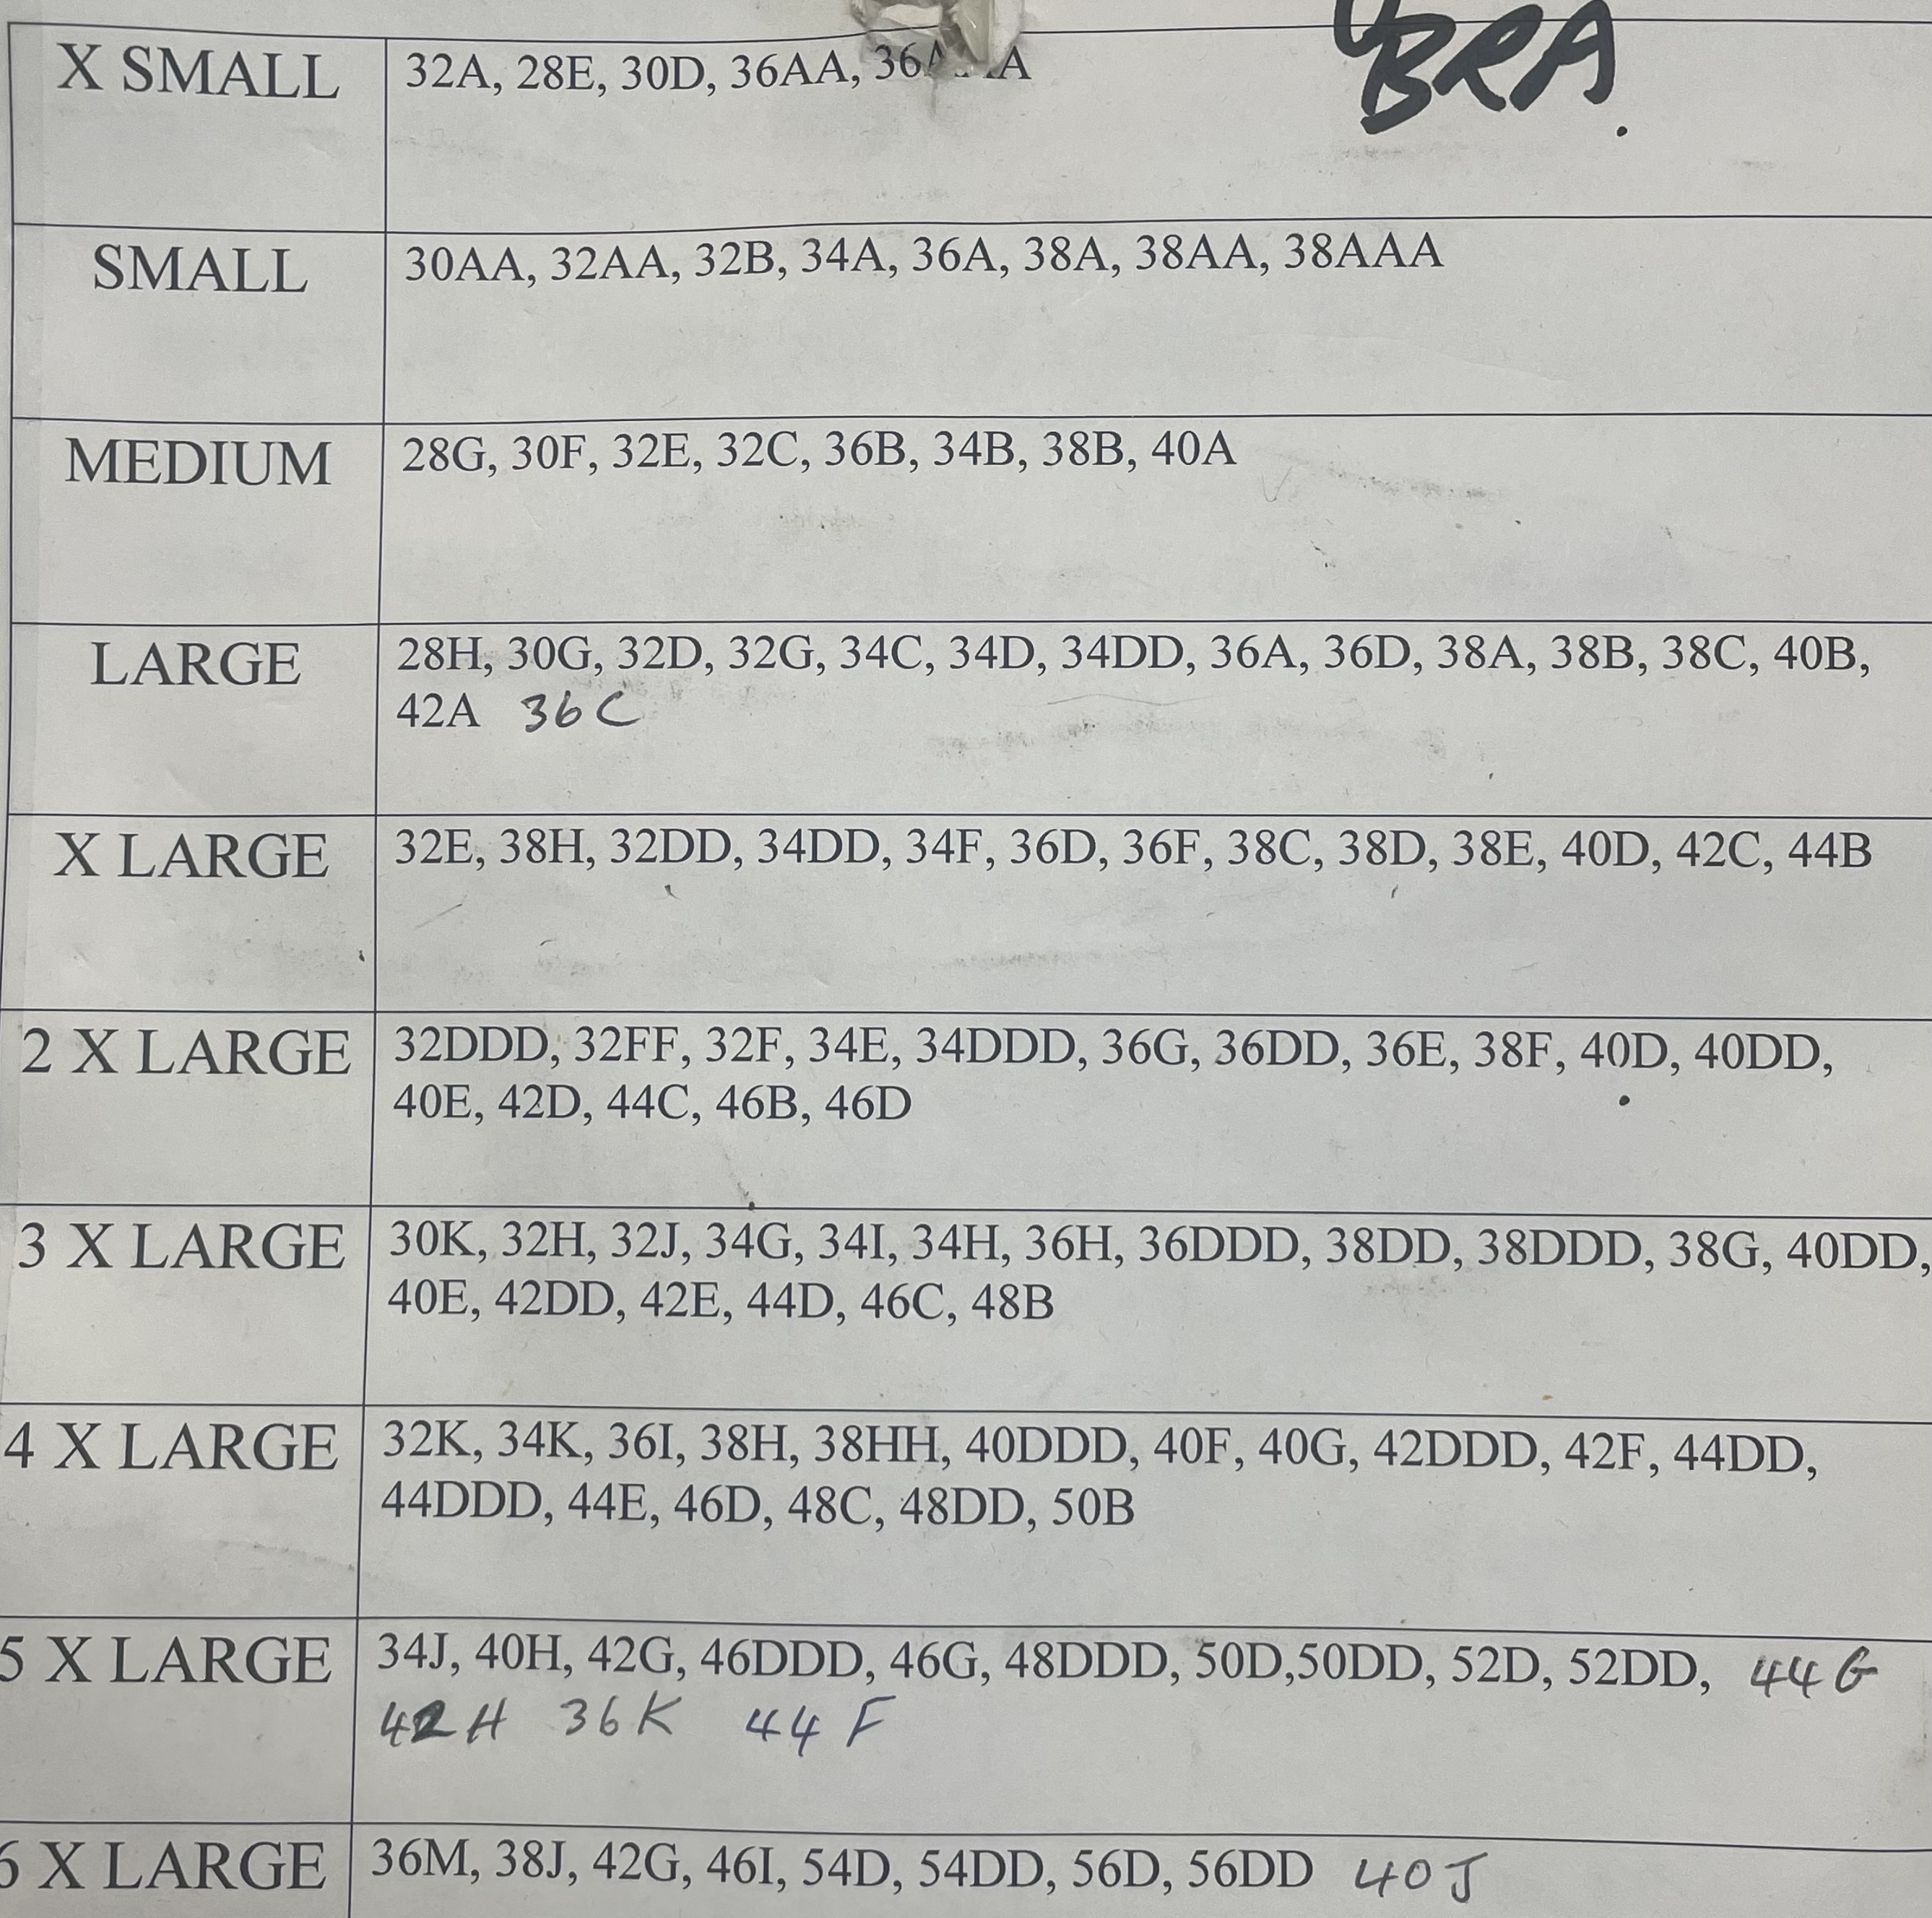 BRA.
X SMALL
32A, 28E, 30D, 36AA,
SMALL
30AA, 32AA, 32B, 34A, 36A, 38A, 38AA, 38AAA
MEDIUM
28G, 30F, 32E, 32C, 36B, 34B, 38B, 40A
LARGE
28H, 30G, 32D, 32G, 34C, 34D, 34DD, 36A, 36D, 38A, 38B, 38C, 40B,
42A 36C
X LARGE
32E, 38H, 32DD, 34DD, 34F, 36D, 36F, 38C, 38D, 38E, 40D, 42C, 44B
2 X LARGE
32DDD, 32FF, 32F, 34E, 34DDD, 36G, 36DD, 36E, 38F, 40D, 40DD,
40E, 42D, 44C, 46B, 46D
3 X LARGE
30K, 32H, 32J, 34G, 34I, 34H, 36H, 36DDD, 38DD, 38DDD, 38G, 40DD,
40E, 42DD, 42E, 44D, 46C, 48B
4 X LARGE
32K, 34K, 36I, 38H, 38HH, 40DDD, 40F, 40G, 42DDD, 42F, 44DD,
44DDD, 44E, 46D, 48C, 48DD, 50B
5 X LARGE
34J, 40H, 42G, 46DDD, 46G, 48DDD, 50D,50DD, 52D, 52DD, 44G
42H 36K 44F
6 X LARGE
36M, 38J, 42G, 46I, 54D, 54DD, 56D, 56DD 40J